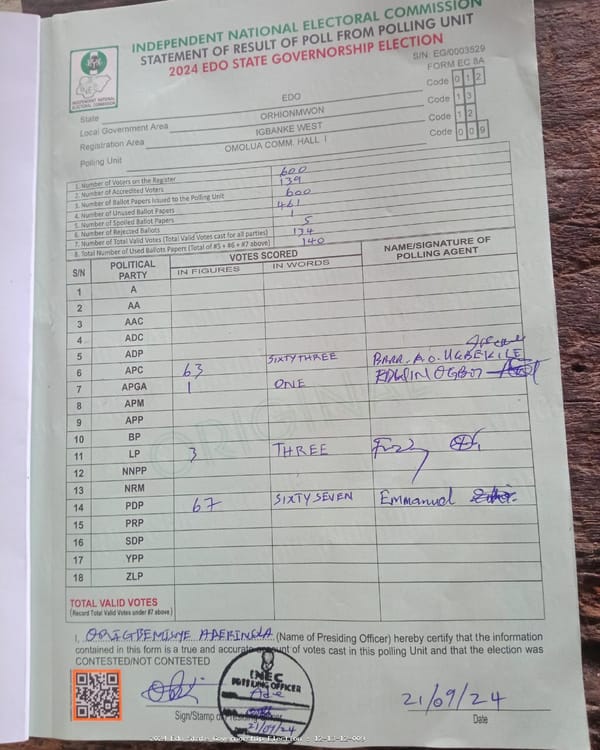 INDEPENDENT NATIONAL ELECTORAL COMMISSION
STATEMENT OF RESULT OF POLL FROM POLLING UNIT
2024 EDO STATE GOVERNORSHIP ELECTION
S/N: EG/0003529
FORM EC 8A
INEC
INDEPENDENT NATIONAL
ELECTORAL COMMISSION
State EDO Code 0 1 2
Local Government Area ORHIONMWON Code 1 3
Registration Area IGBANKE WEST Code 1 2
Polling Unit OMOLUA COMM. HALL I Code 0 0 9
1. Number of Voters on the Register 600
2. Number of Accredited Voters 139
3. Number of Ballot Papers Issued to the Polling Unit 600
4. Number of Unused Ballot Papers 461
5. Number of Spoiled Ballot Papers 1
6. Number of Rejected Ballots 5
7. Number of Total Valid Votes (Total Valid Votes cast for all parties) 134
8. Total Number of Used Ballots Papers (Total of #5 + #6 + #7 above) 140
S/N POLITICAL PARTY VOTES SCORED NAME/SIGNATURE OF POLLING AGENT
IN FIGURES IN WORDS
1 A
2 AA
3 AAC
4 ADC
5 ADP
6 APC 63 SIXTYTHREE BARR. A.O. UGBEKILE
7 APGA 1 ONE EDWIN OGBOI
8 APM
9 APP
10 BP
11 LP 3 THREE
12 NNPP
13 NRM
14 PDP 67 SIXTY SEVEN Emmanuel
15 PRP
16 SDP
17 YPP
18 ZLP
TOTAL VALID VOTES
(Record Total Valid Votes under #7 above)
I, (Name of Presiding Officer) hereby certify that the information
contained in this form is a true and accurate account of votes cast in this polling Unit and that the election was
CONTESTED/NOT CONTESTED
INEC
Ade
21/09/24
Sign/Stamp of Presiding
21/09/24
Date
2024 Edo State Governorship Election : 12-13-12-009
ORIGINAL